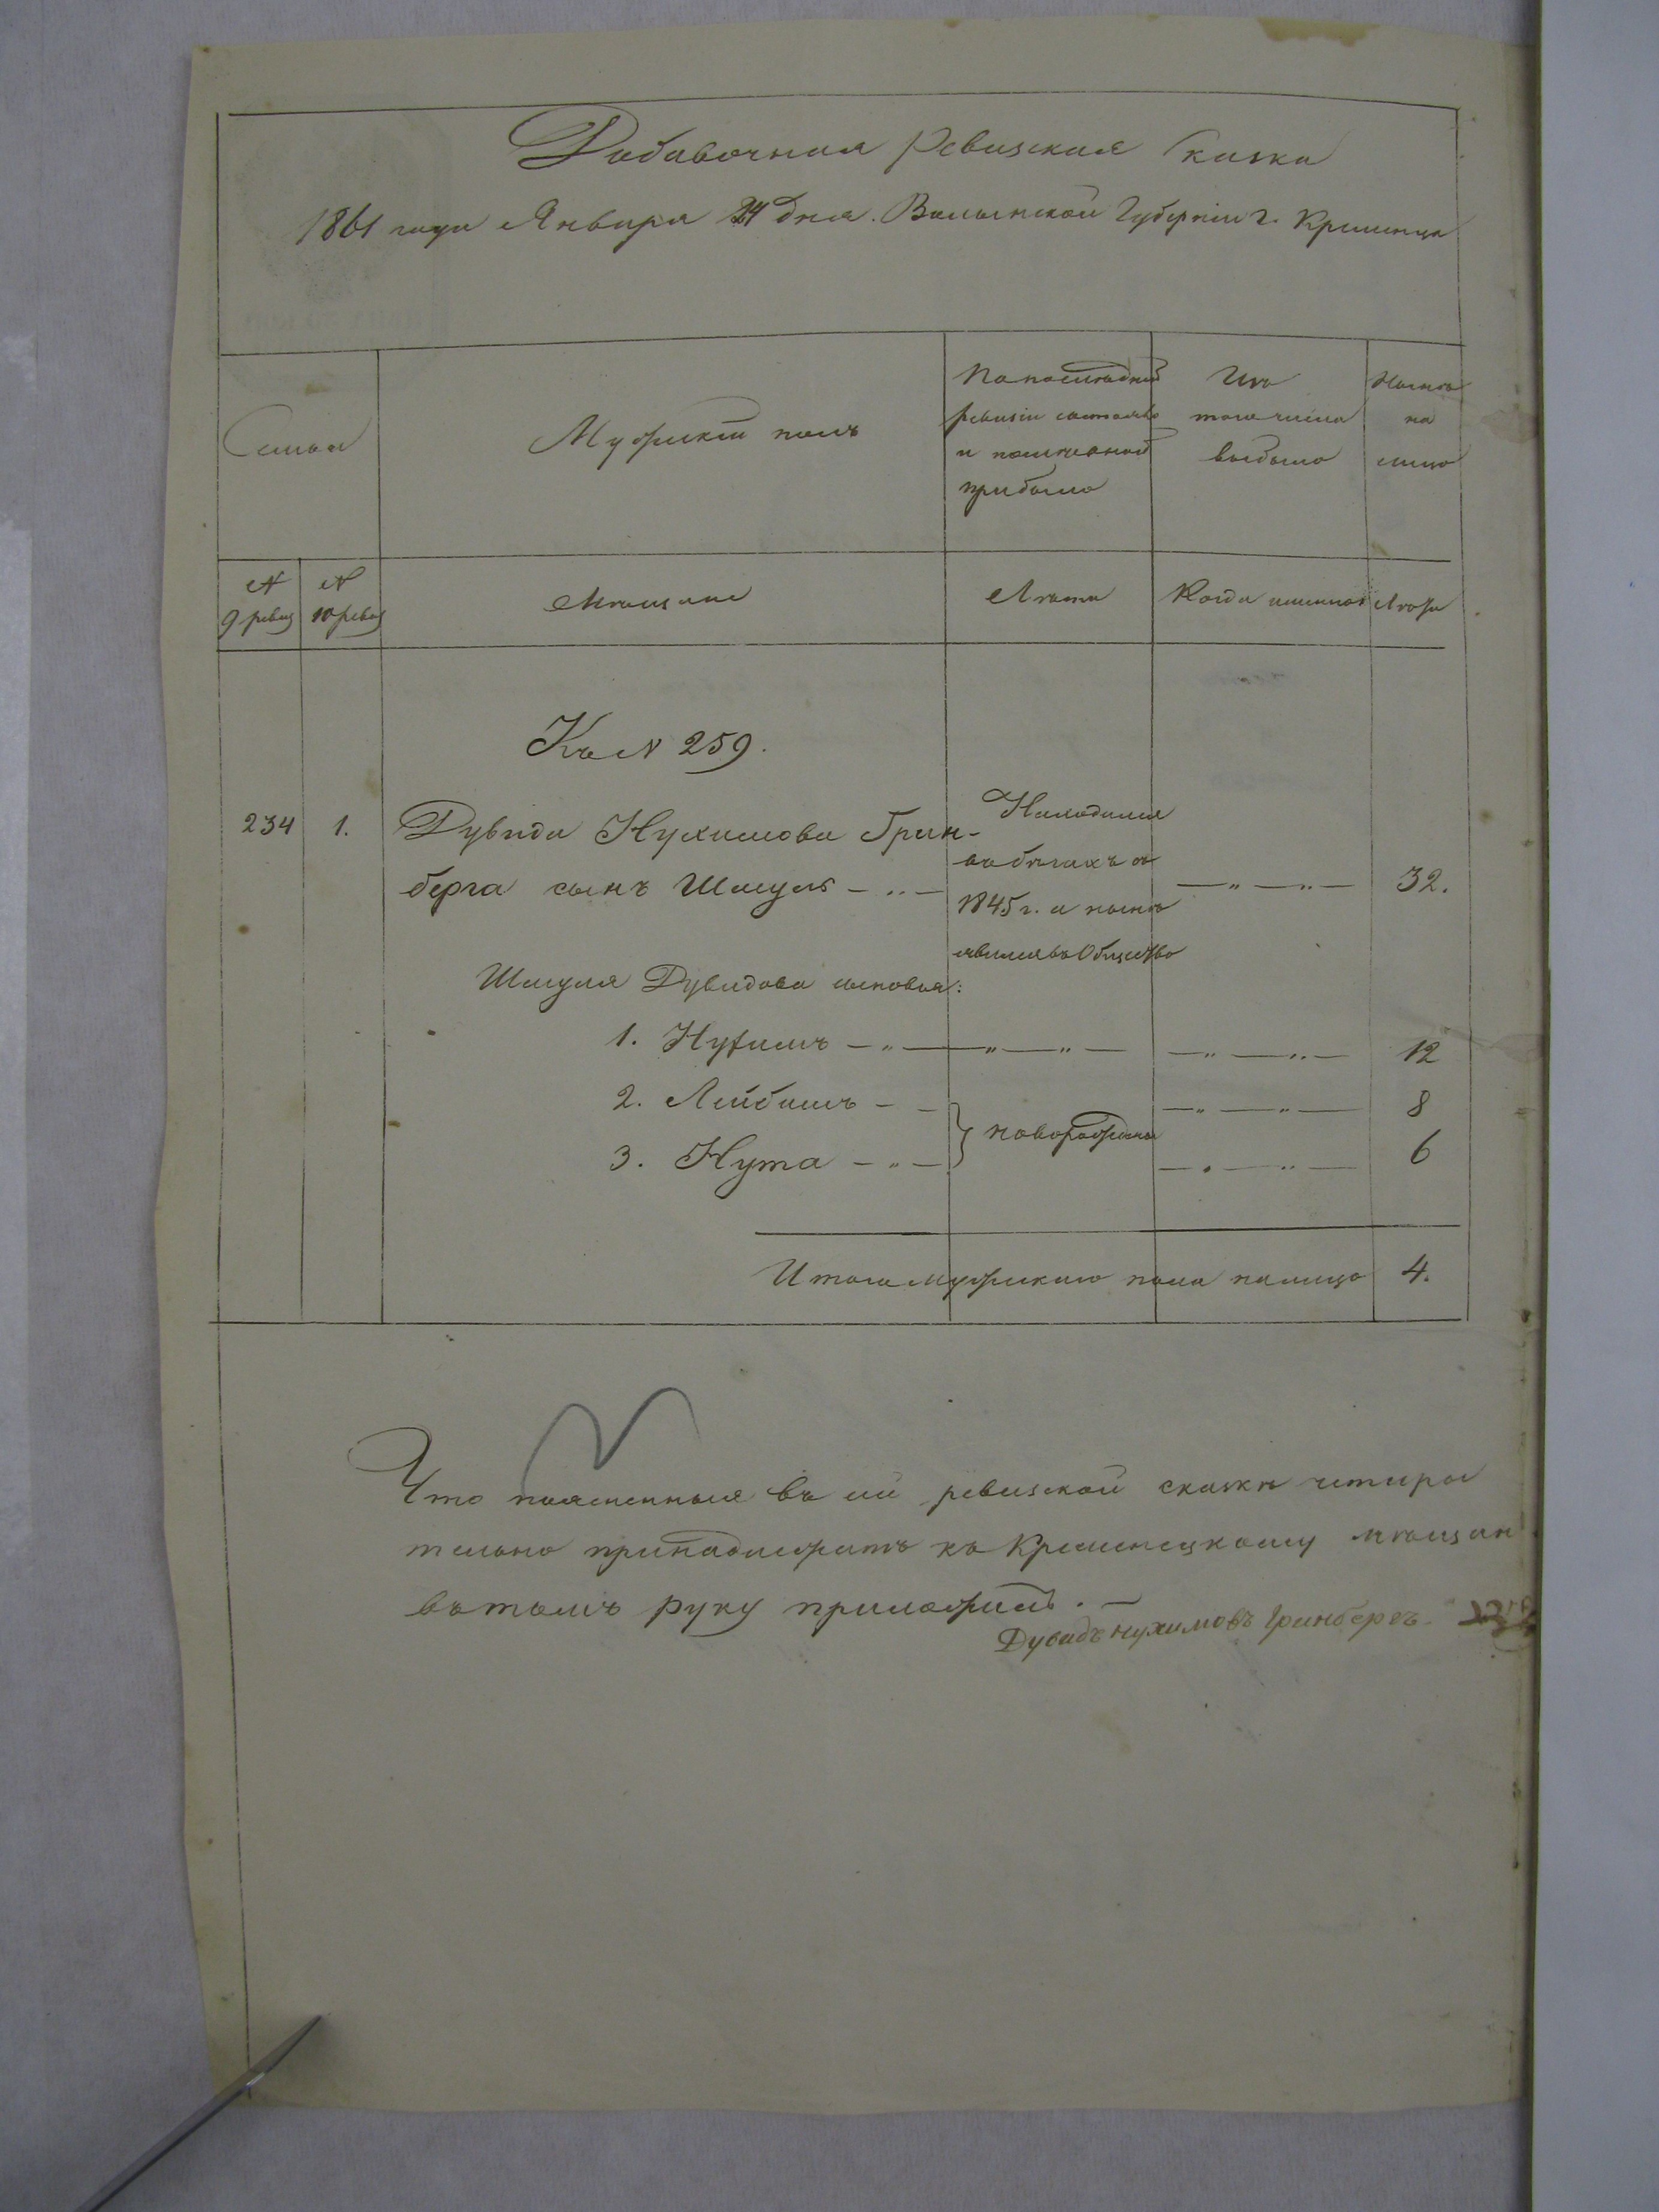 Добавочная Ревизская Сказка
1861 года Января 24 дня. Волынской Губерніи г. Кременца
Семьи
Мужескій полъ
По последней
ревизіи состояло
и после оной
прибыло
Изъ
того числа
выбыло
Ныне
на
лицо
№
9 ревиз
№
10 ревиз
Мѣщане
Лѣта
Когда именно
Лѣта
Къ № 259.
234 1. Дувида Нухимова Грин-
берга сынъ Шмуль — " — — " — " — 32.
Находился
въ бѣгахъ съ
1845 г. и нынѣ
явился въ Общество
Шмуля Дувидова сыновья:
1. Нухимъ — " — " — " — — " — " — 12
2. Лейбишъ — — — " — " — 8
3. Нута — " — } новорожденные — " — " — 6
Итого мужескаго пола налицо 4.
Что поясненныя въ сей ревизской сказкѣ четыре
принадлежатъ къ Кременецкому мѣщан
въ томъ руку приложилъ. —
Дувидъ нухимовъ Гринбергъ